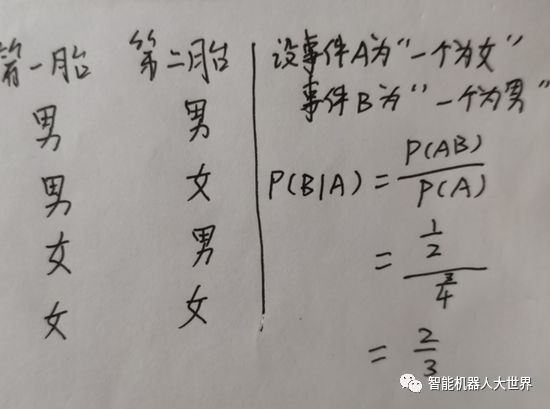 第一胎 第二胎
男 男
男 女
女 男
女 女
设事件A为“一个为女”
事件B为“一个为男”
P(B|A) = P(AB) / P(A)
= 1/2 / 3/4
= 2/3
智能机器人大世界